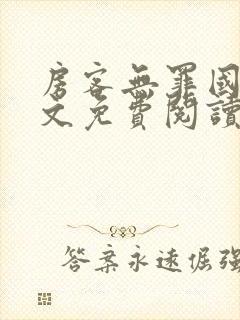 房客無罪國
文免費閱讀
答案永遠倔強